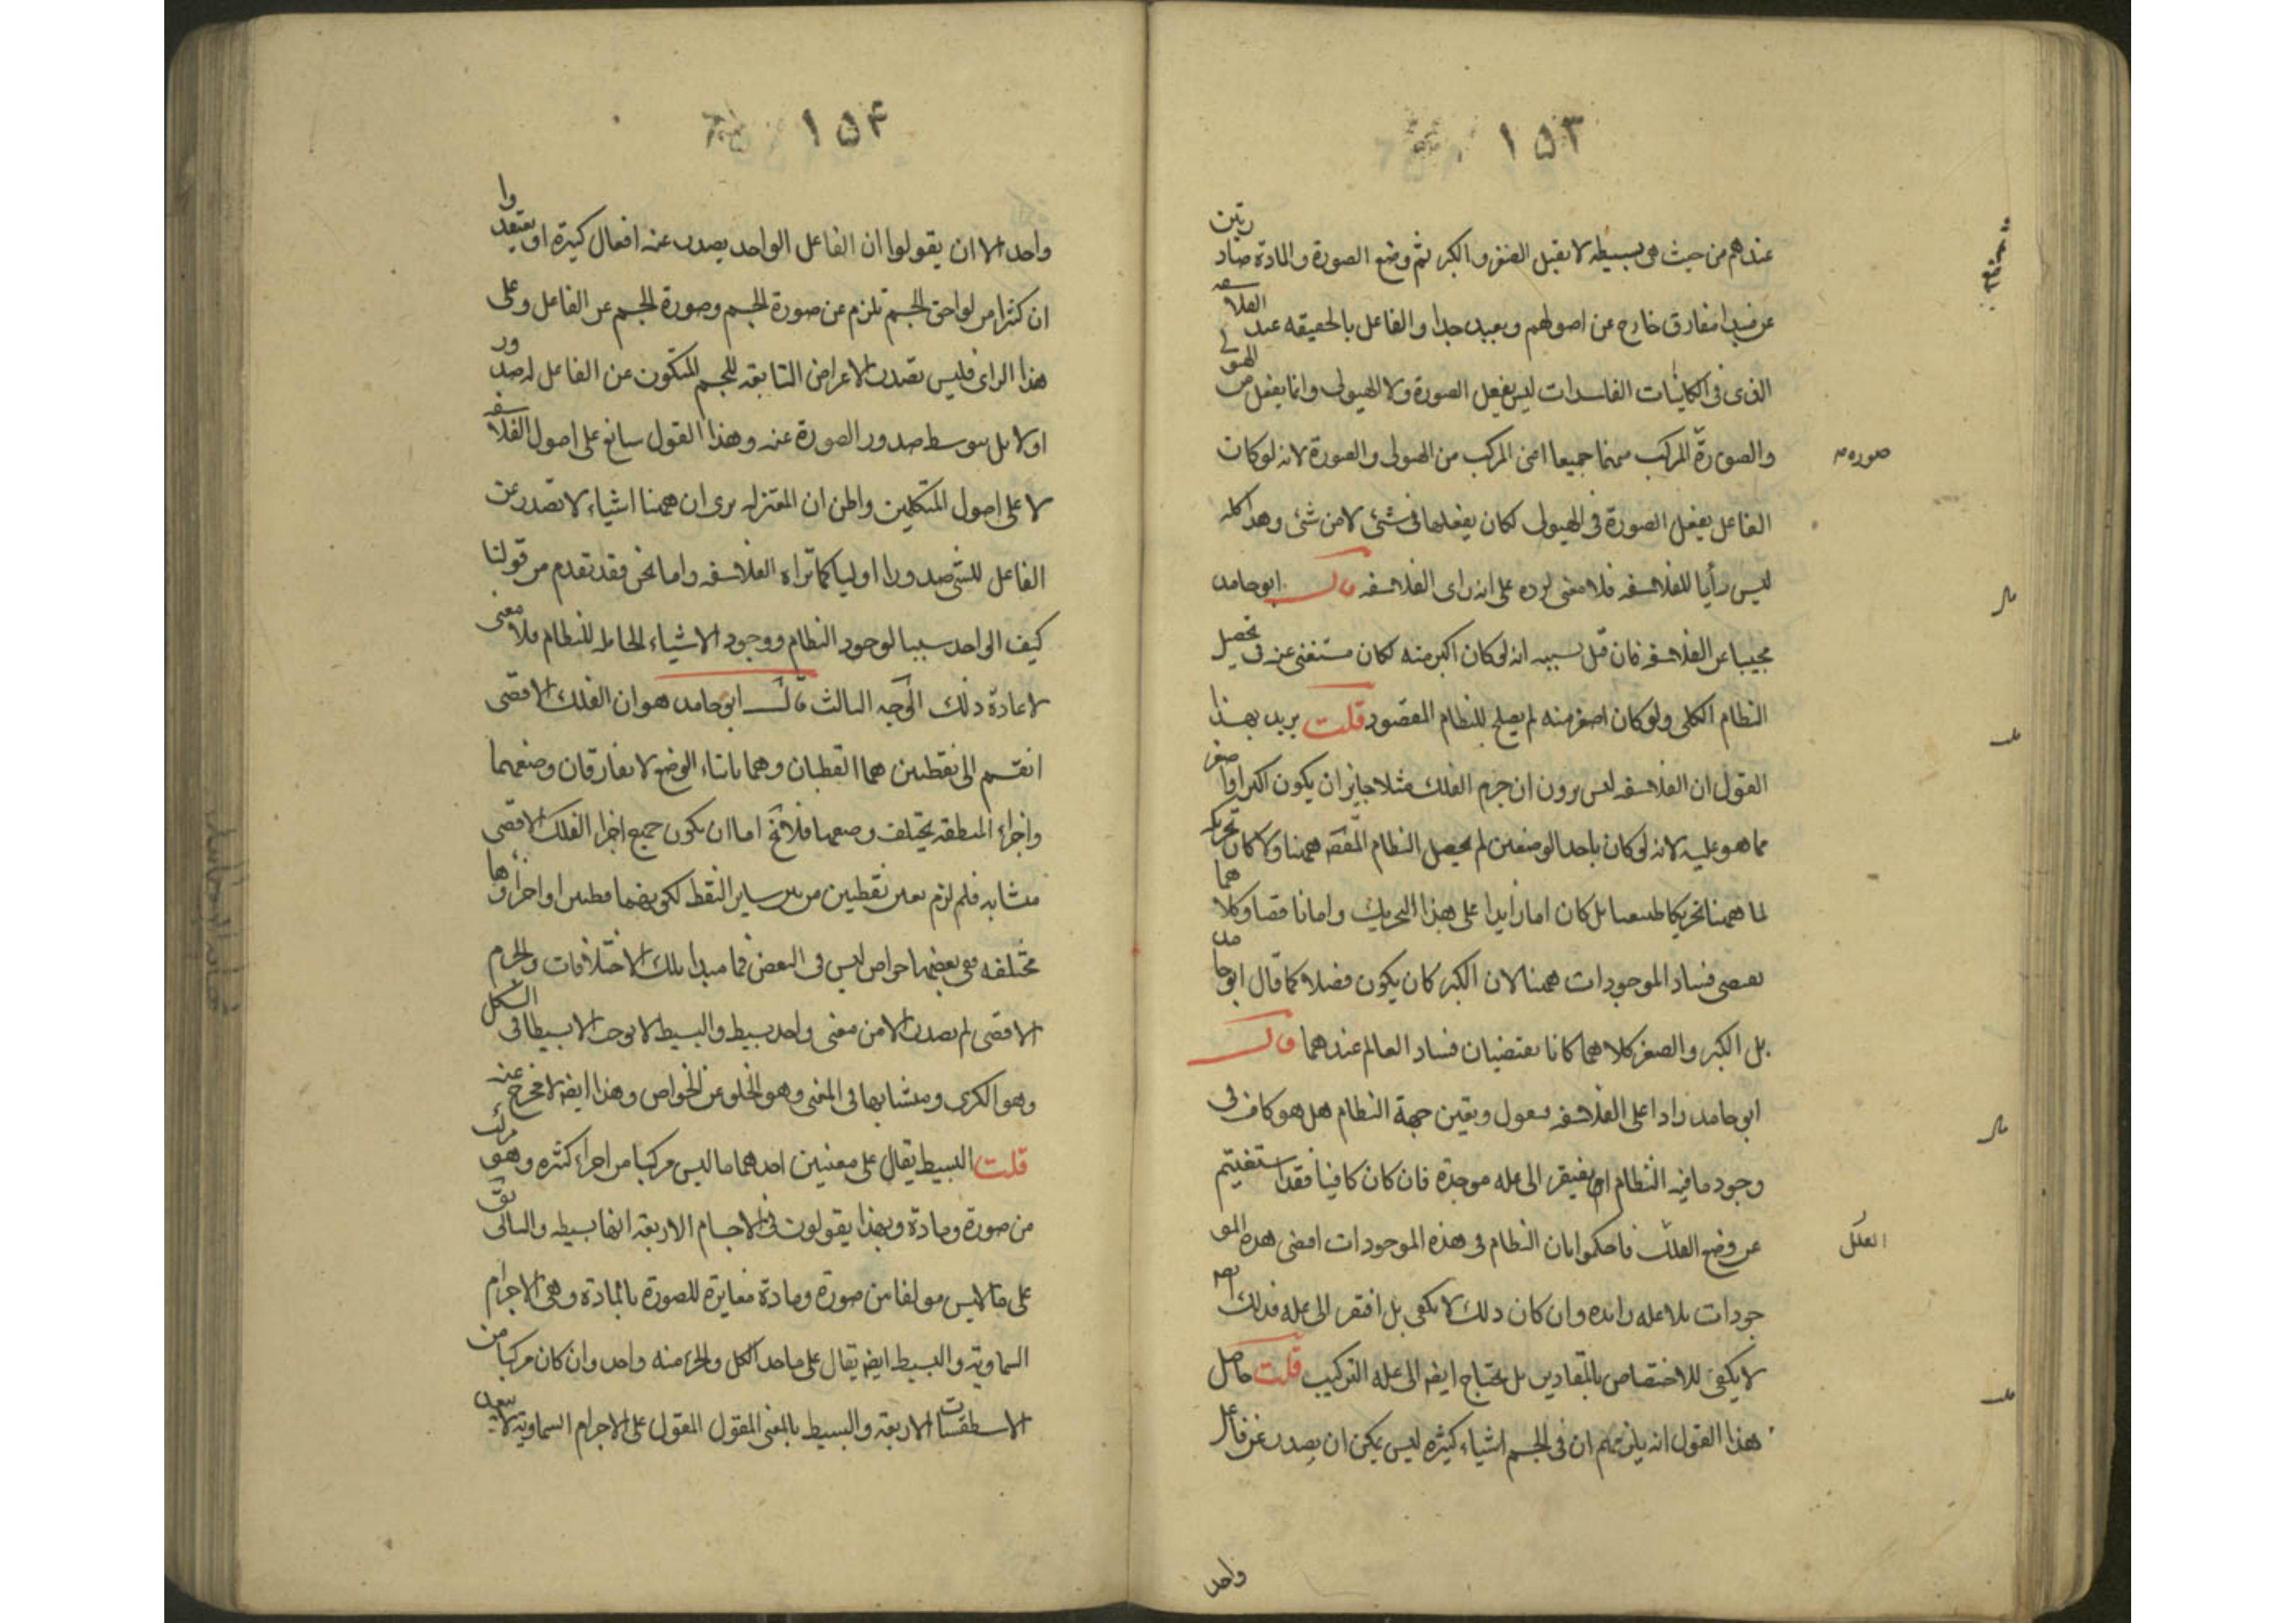 ١٥٣
عندهم من حيث هى بسيطه لا يقبل الصغر والكبر ثم وضع الصورة والمادة صادرتين
عن مبدا مفارق خارج عن اصولهم وبعيد جدا والفاعل بالحقيقه عند الفلاسفه
الذى فى الكائنات الفاسدات ليس يفعل الصورة ولا الهيولى وانما يفعل من الهيولى
والصورة المركب منهما جميعا اعنى المركب من الهيولى والصورة لانه لو كان
صوره
الفاعل يفعل الصورة فى الهيولى لكان يفعلها فى شئ لا من شئ وهذا كله
ليس رأيا للفلاسفه فلا معنى لرده على انه راى الفلاسفه قال ابو حامد
مجيبا عن الفلاسفه فان قيل سببه انه لو كان اكبر منه لكان مستغنى عنه فى تحصيل
النظام الكلى ولو كان اصغر منه لم يصلح للنظام المقصود قلت يريد بهذا
القول ان الفلاسفه ليس يرون ان جرم الفلك مثلا جايز ان يكون اكبر او اصغر
مما هو عليه لانه لو كان باحد الوصفين لم يحصل النظام المقصد ههنا ولا كان تحريكه
لما ههنا تحريكا طبيعيا بل كان اما زايدا على هذا التحريك واما ناقصا وكلاهما
يقتضى فساد الموجودات ههنا لان الكبر كان يكون فضلا كما قال ابو حامد
بل الكبر والصغر كلاهما كانا يقتضيان فساد العالم عندهما قال
ابو حامد رادا على الفلاسفه فنقول وتعين جهة النظام هل هو كاف فى
وجود ما فيه النظام ام يفتقر الى عله موجدة فان كان كافيا فقد استغنيتم
عن وضع العلل فاحكموا بان النظام فى هذه الموجودات اقتضى هذه المو
العلل
جودات بلا عله زائده وان كان ذلك لا يكفى بل افتقر الى عله فذلك ايضه
لا يكفى للاختصاص بالمقادير بل يحتاج ايضه الى عله التركيب قلت حاصل
هذا القول انه يلزمهم ان فى الجسم اشياء كثيره ليس يمكن ان يصدر عن فاعل
واحد
١٥۴
واحد الا ان يقولوا ان الفاعل الواحد يصدر عنه افعال كثيرة او يعتقدوا
ان كثيرا من لواحق الجسم تلزم عن صورة الجسم وصورة الجسم عن الفاعل وعلى
هذا الراى فليس تصدر الاعراض التابعه للجسم المتكون عن الفاعل له صدور
اولا بل بتوسط صدور الصورة عنه وهذا القول سائغ على اصول الفلاسفه
لا على اصول المتكلمين واظن ان المعتزله يرى ان ههنا اشياء لا تصدر عن
الفاعل للشى صدورا اوليا كما تراه الفلاسفه واما نحن فقد تقدم من قولنا
كيف الواحد سببا لوجود النظام ووجود الاشياء الحامله للنظام فلا معنى
لاعادة ذلك الوجه الثالث قال ابو حامد هو ان الفلك الاقصى
انقسم الى نقطتين هما القطبان وهما ثابتا الوضع لا يفارقان وضعهما
واجراء المنطقه يختلف وضعها فلا يخ اما ان يكون جميع اجزا الفلك الاقصى
متشابه فلم لزم تعين نقطتين من بين ساير النقط لكونهما قطبين او اجزاؤها
مختلفه ففى بعضها خواص ليس فى البعض فما مبدا تلك الاختلافات والجرم
الاقصى لم يصدر الا من معنى واحد بسيط والبسيط لا يوجب الا بسيطا فى الشكل
وهو الكرى ومتشابها فى المعنى وهو الخلو عن الخواص وهذا ايضه لا مخرج عنه
قلت البسيط يقال على معنيين احدهما ما ليس مركبا من اجزاء كثيره وهو مركب
من صورة ومادة وبهذا يقولون فى الاجسام الاربعه انها بسيطه والثانى يق
على ما ليس مولفا من صورة ومادة مغايرة للصورة بالمادة وهى الاجرام
السماويه والبسيط ايضه يقال على ما حد الكل والجزء منه واحد وان كان مركبا من
الاسطقسات الاربعه والبسيط بالمعنى المقول المقول على الاجرام السماويه لا يبعد